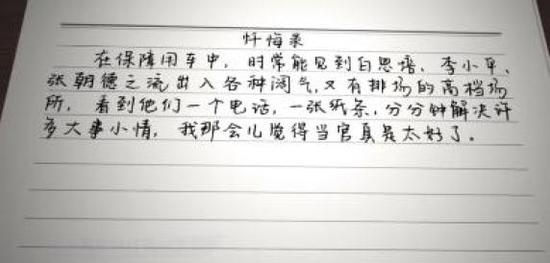 忏悔录
在保障用车中，时常能见到白恩培、李小平、
张朝德之流出入各种阔气，又有排场的高档场
所，看到他们一个电话，一张纸条，分分钟解决许
多大事小情，我那会儿觉得当官真是太好了．